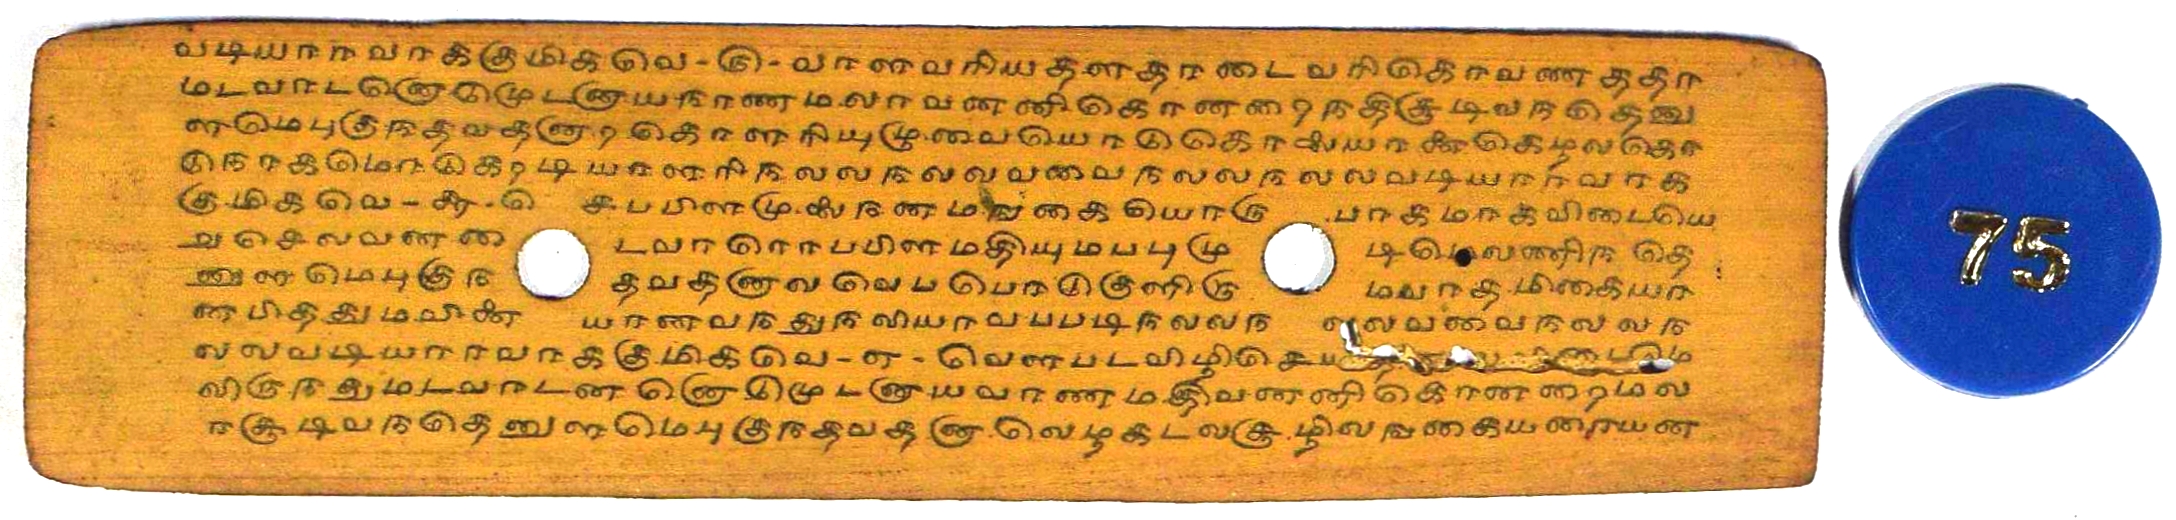 வடியாரவாககுமிகவெ-௫-வாளவரியதளதாடைவரிகொவணததர
மடவாடனொடுமுடனாயநாணமலரவனனிகொனறைநதிசூடிவநதெனு
ளமெபுகுநதவதனாறகொளரியுழுவையொடுகொலயானைகெழலகொ
டுநாகமொடுகரடியாளரிநலலநலலவவவைநலலநலலவடியாரவாக
குமிகவெ-௬-செ சபபிளமுலைநனமஙகையொரு பாகமாகவிடையெ
றுசெலவவணடை டவாரொபபிளமதியுமபபுமு டிமெலணிநதெ
னுளமெபுகுந தவதனாலவெபபொடுகுளிரு மவாதமிகையா
னபிததுமவினை யானவநதுநலியாவபபடிநலலந லலவவைநலலந
லலவடியாரவாககுமிகவெ-௭-வெளபடவிழிசெய டைமெ
லிருநதுமடவாடனனொடுமுடனாயவாணமதிவனனிகொனறைமல
ரசூடிவநதெனுளமெபுகுநதவதனாலெழகடலசூழிலஙகையரையன
75